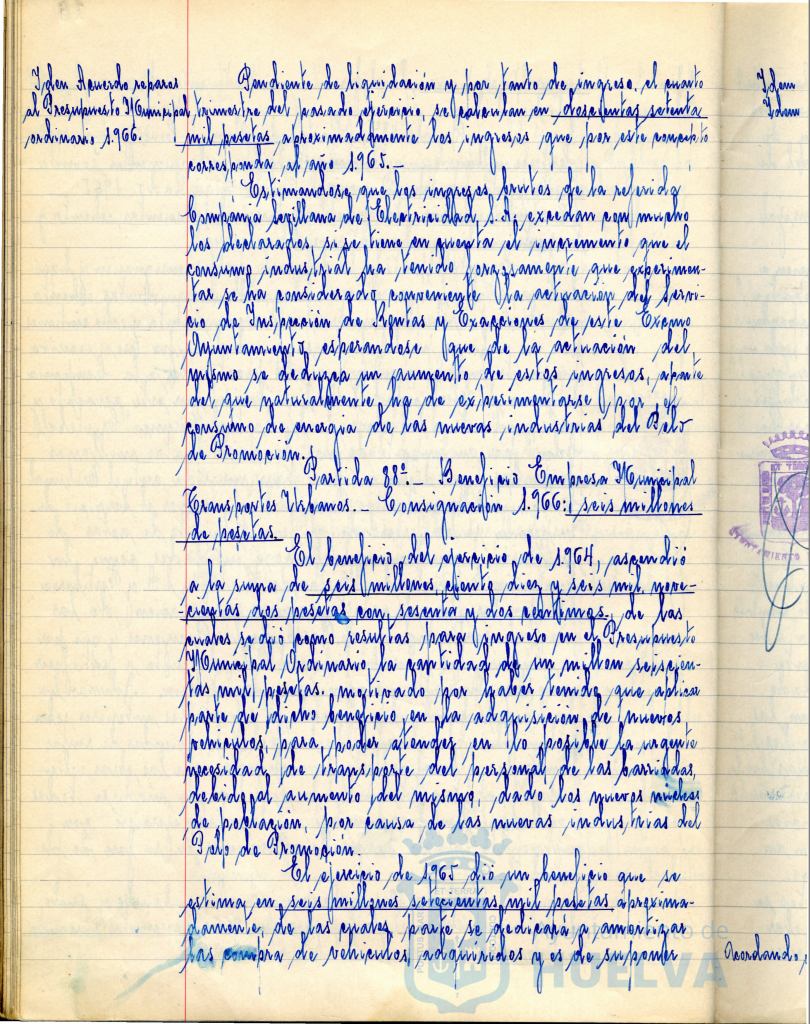 Idem Acuerdo reparos
al Presupuesto Municipal
ordinario 1.966.
Pendiente de liquidación y por tanto de ingreso, el cuarto
trimestre del pasado ejercicio, se calculan en doscientas setenta
mil pesetas aproximadamente los ingresos que por este concepto
corresponda al año 1.965.-
Estimandose que los ingresos brutos de la referida
Compañia Sevillana de Electricidad, S.A, excedan con mucho
los declarados, si se tiene en cuenta el incremento que el
consumo industrial ha tenido forzosamente que experimen-
tar se ha considerado conveniente la actuación del Servi-
cio de Inspección de Rentas y Exacciones de este Excmo
Ayuntamiento, esperandose que de la actuación del
mismo se deduzca un aumento de estos ingresos, aparte
del que naturalmente ha de experimentarse por el
consumo de energia de las nuevas industrias del Polo
de Promoción.
Partida 88ª.- Beneficio Empresa Municipal
Transportes Urbanos.- Consignación 1.966: seis millones
de pesetas.
El beneficio del ejercicio de 1.964, ascendió
a la suma de seis millones ciento diez y seis mil nove-
-cientas dos pesetas con sesenta y dos centimos, de las
cuales se dió como resultas para ingreso en el Presupuesto
Municipal Ordinario, la cantidad de un millon seiscien-
tas mil pesetas, motivado por haber tenido que aplicar
parte de dicho beneficio en la adquisición de nuevos
vehiculos, para poder atender en lo posible la urgente
necesidad de transporte del personal de las barriadas,
debido al aumento del mismo, dado los nuevos nucleos
de población, por causa de las nuevas industrias del
Polo de Promoción.
El ejercicio de 1.965 dió un beneficio que se
estima en seis millones setecientas mil pesetas aproxima-
damente, de las cuales parte se dedicará a amortizar
las compra de vehiculos adquiridos y es de suponer
Idem
Idem
AYUNTAMIENTO
Acordando,
Ayuntamiento de
HUELVA